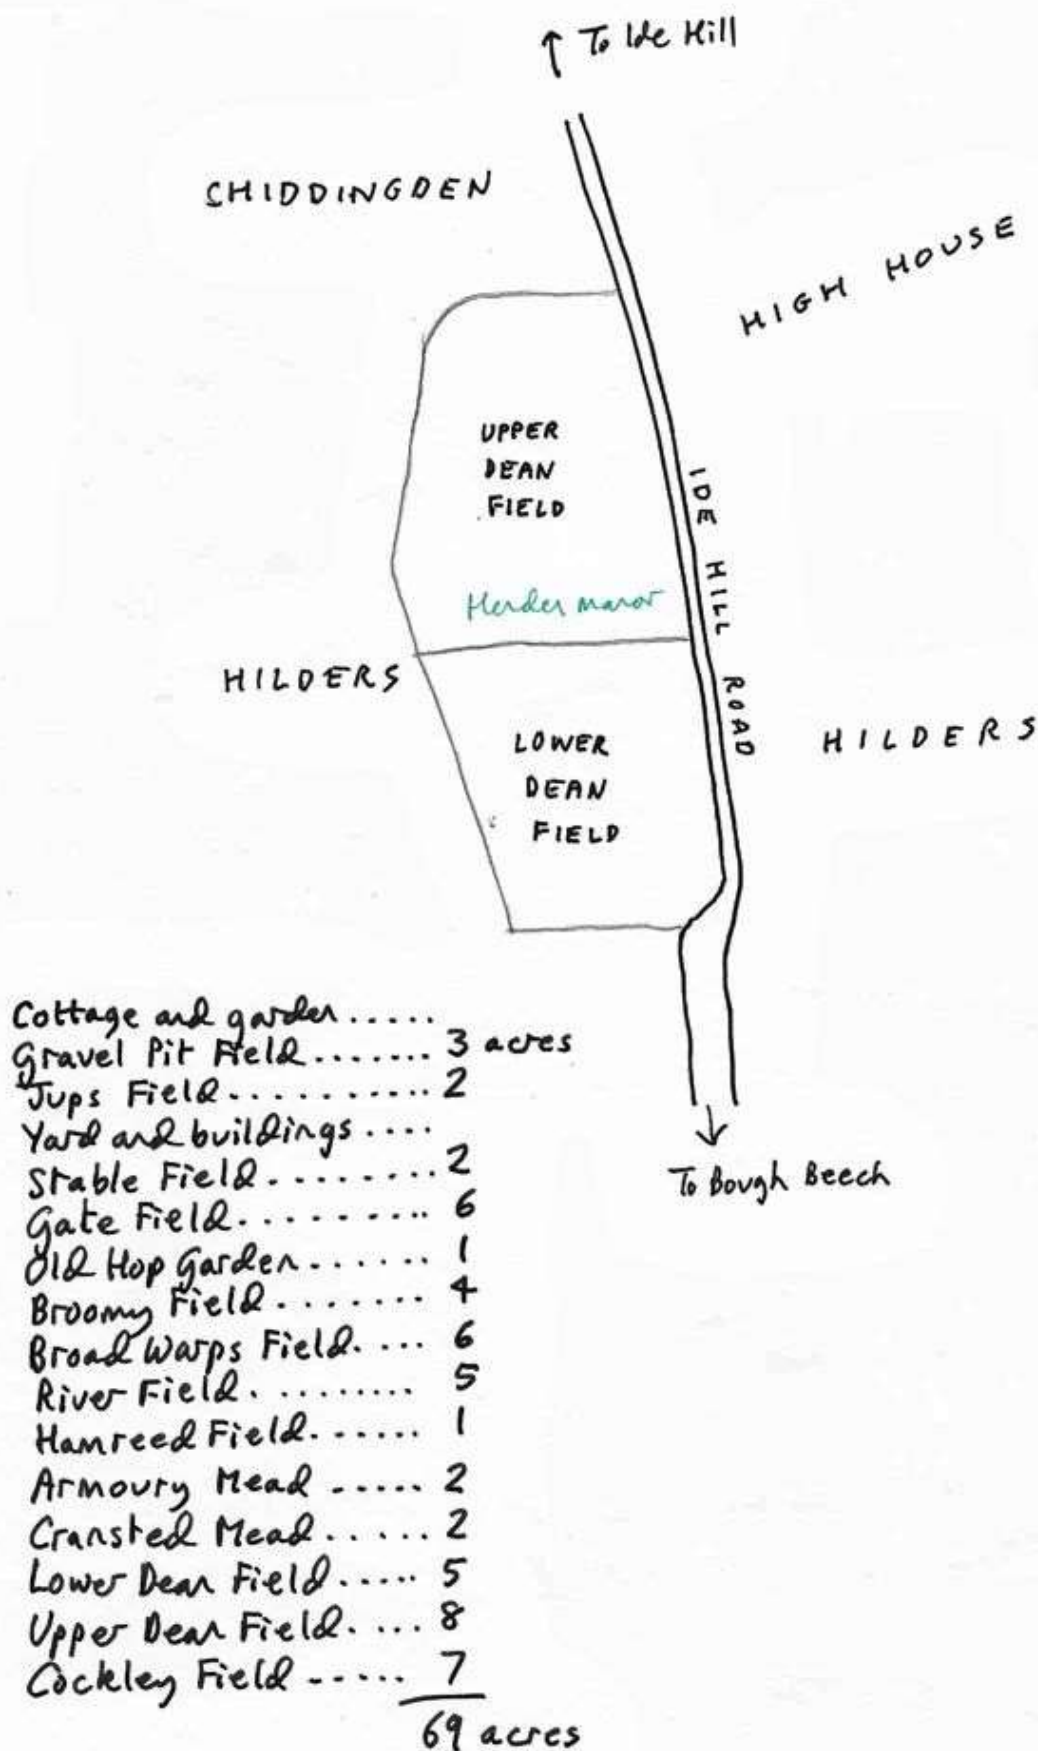 ↑ To Ide Hill
CHIDDINGDEN
HIGH HOUSE
UPPER
DEAN
FIELD
IDE HILL ROAD
Herder manor
HILDERS
HILDERS
LOWER
DEAN
FIELD
Cottage and garden.....
Gravel Pit Field....... 3 acres
Jups Field.......... 2
Yard and buildings....
Stable Field........ 2
Gate Field......... 6
Old Hop Garden...... 1
Broomy Field....... 4
Broad Warps Field.... 6
River Field......... 5
Hamreed Field...... 1
Armoury Mead ..... 2
Cransted Mead..... 2
Lower Dean Field..... 5
Upper Dean Field.... 8
Cockley Field ..... 7
69 acres
↓
To Bough Beech